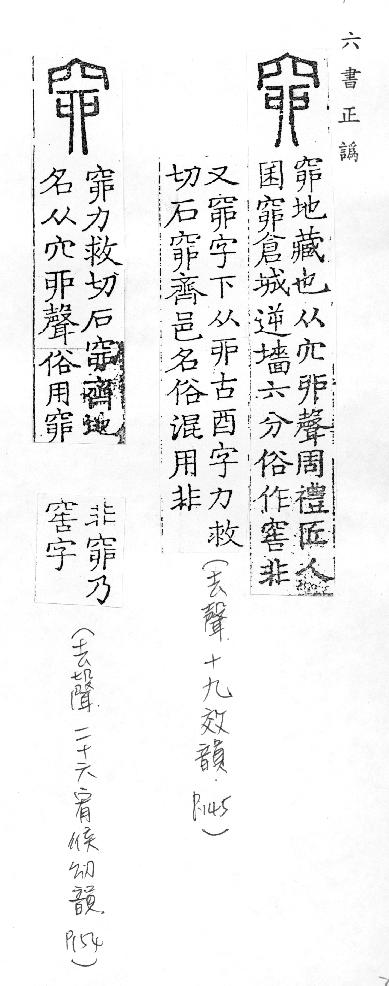 六書正譌
窌
窌地藏也从穴戼聲周禮匠人
囷窌倉城逆墻六分俗作窖非
又窌字下从丣古酉字力救
切石窌齊邑名俗混用非
（去聲.十九效韻.P.145）
窌
窌力救切石窌齊地
名从穴丣聲俗用窌
非窌乃
窖字
（去聲.二十六宥候幼韻.P.154）